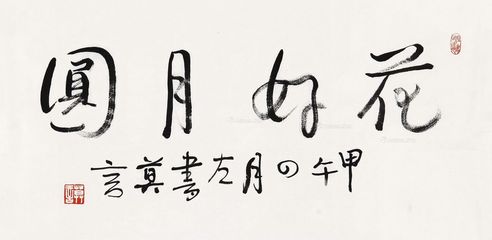 花好月圓
甲午四月左書莫言